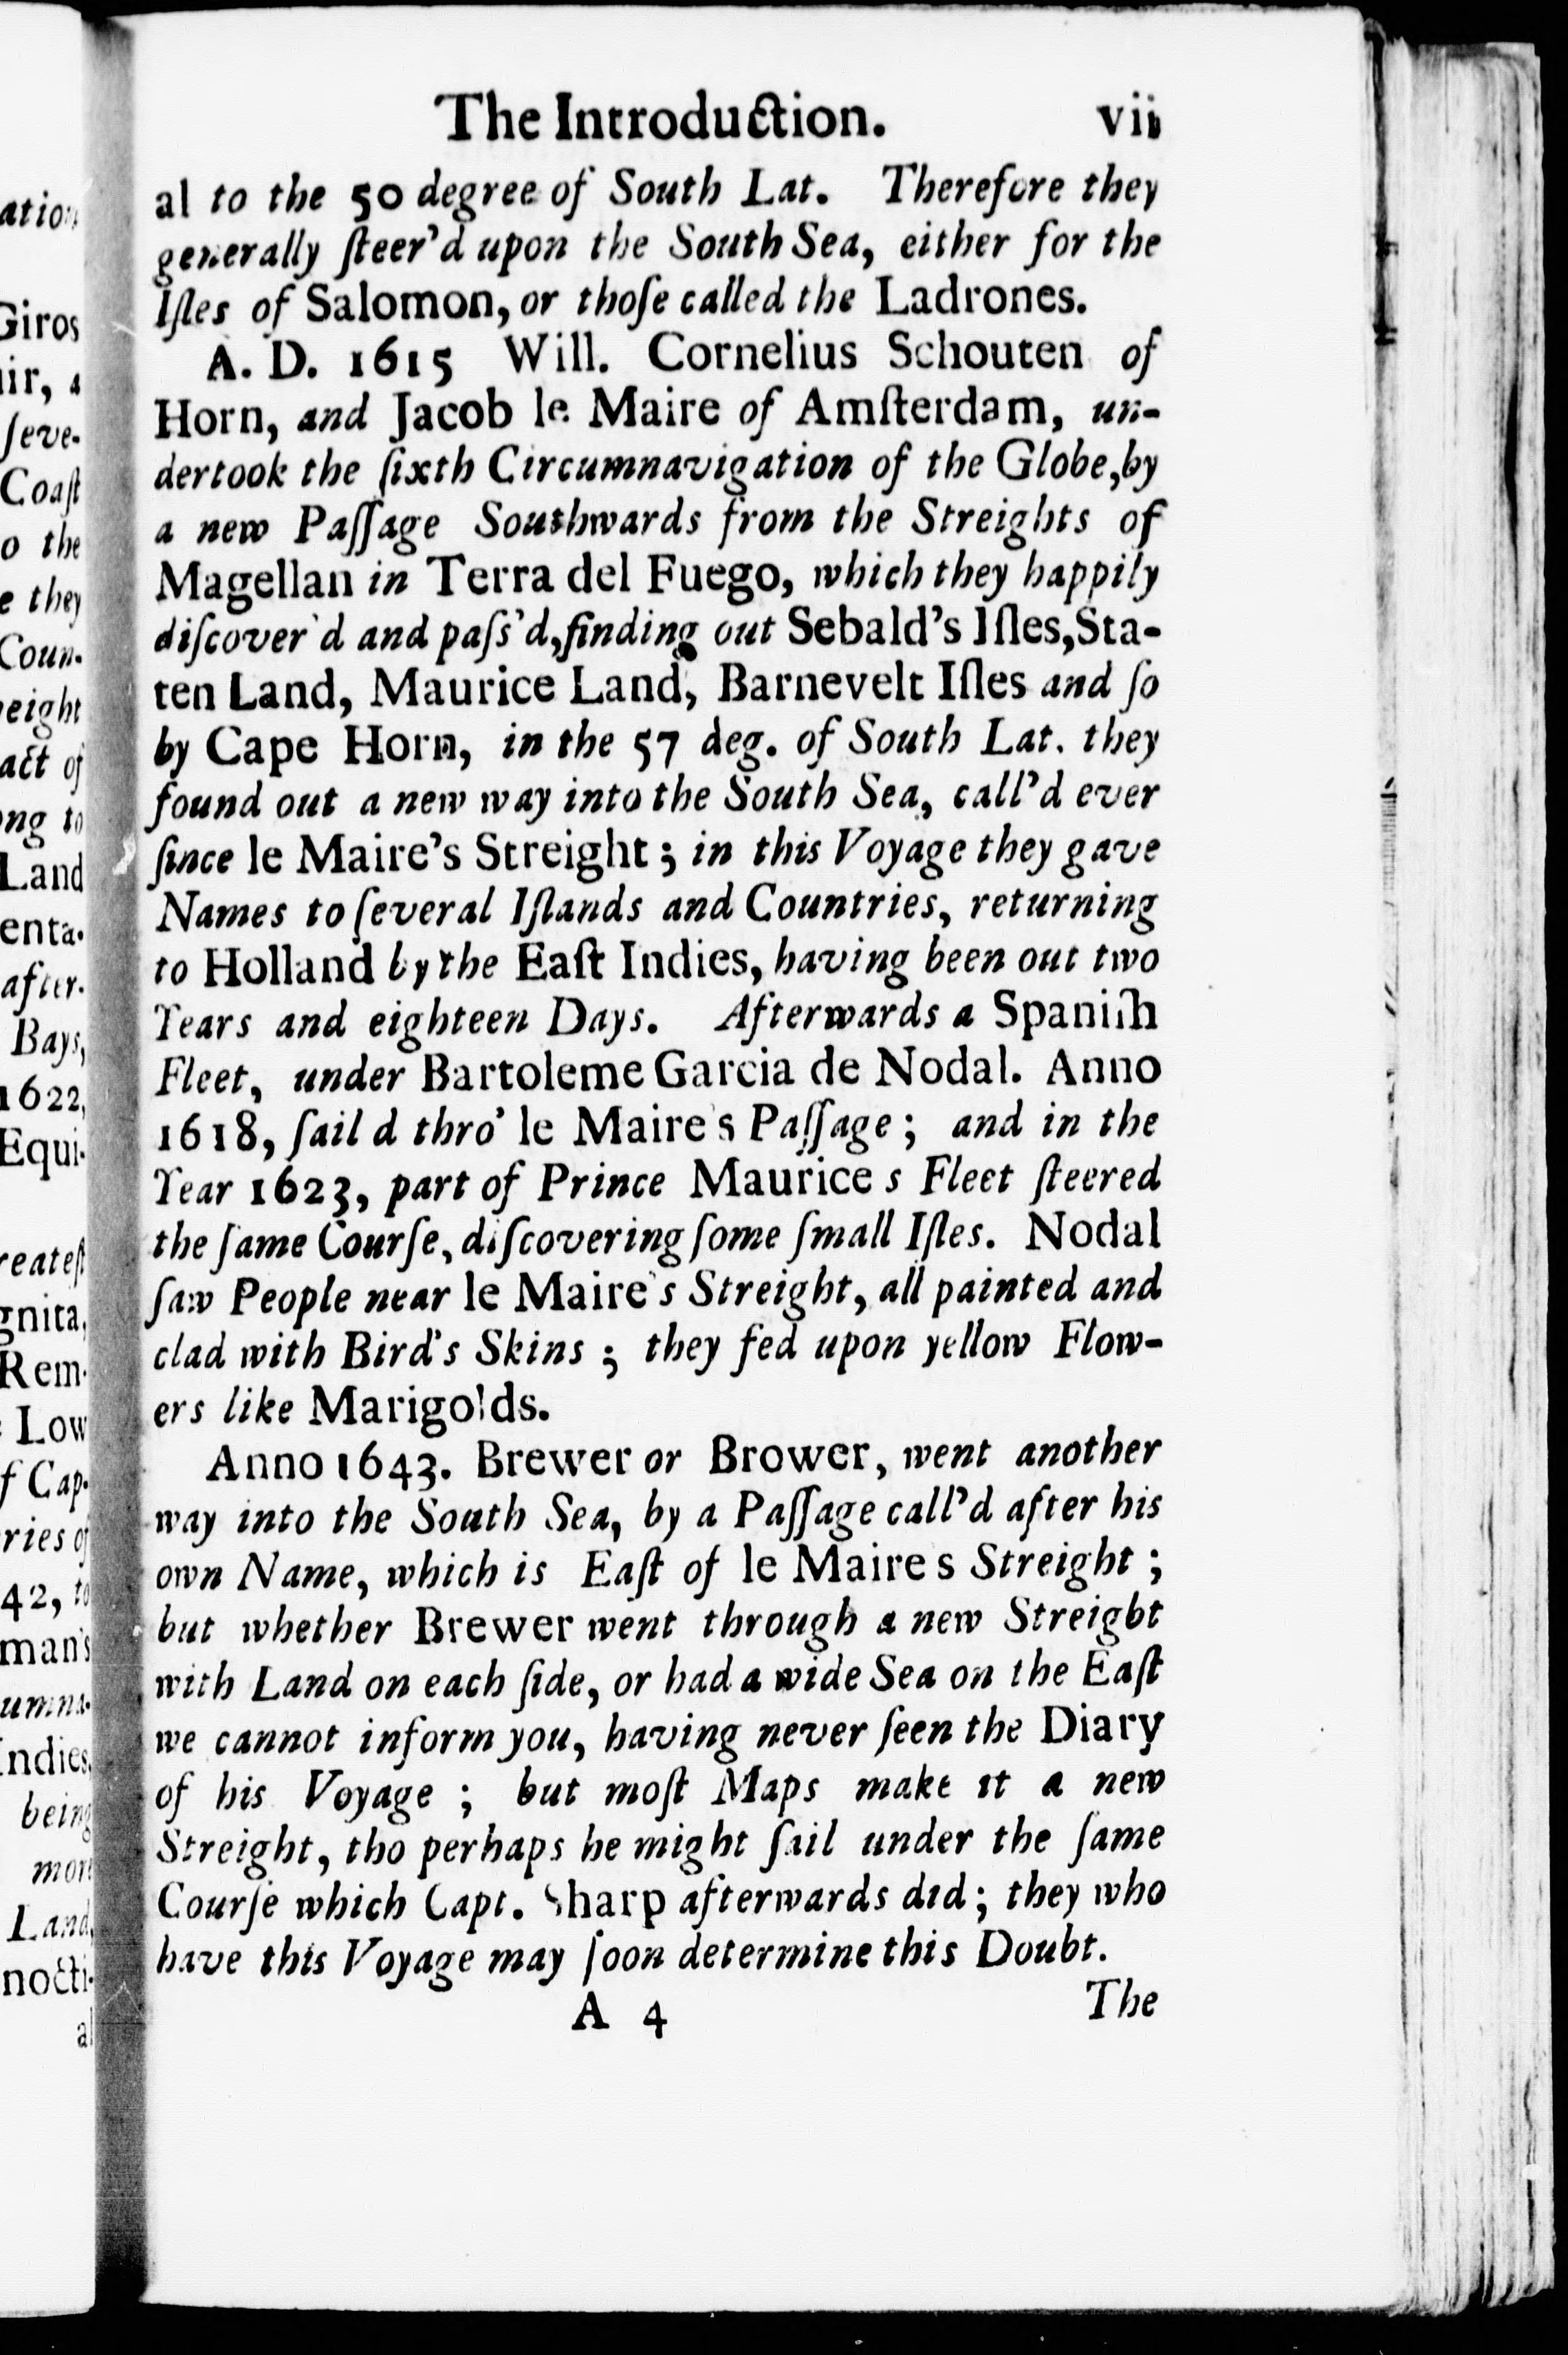 The Introduction. vii
al to the 50 degree of South Lat. Therefore they
generally ſteer'd upon the South Sea, either for the
Iſles of Salomon, or thoſe called the Ladrones.
A. D. 1615 Will. Cornelius Schouten of
Horn, and Jacob le Maire of Amſterdam, un-
dertook the ſixth Circumnavigation of the Globe, by
a new Paſſage Southwards from the Streights of
Magellan in Terra del Fuego, which they happily
diſcover'd and paſs'd, finding out Sebald's Iſles, Sta-
ten Land, Maurice Land, Barnevelt Iſles and ſo
by Cape Horn, in the 57 deg. of South Lat. they
found out a new way into the South Sea, call'd ever
ſince le Maire's Streight; in this Voyage they gave
Names to ſeveral Iſlands and Countries, returning
to Holland by the Eaſt Indies, having been out two
Years and eighteen Days. Afterwards a Spaniſh
Fleet, under Bartoleme Garcia de Nodal. Anno
1618, ſail d thro' le Maire's Paſſage; and in the
Year 1623, part of Prince Maurice s Fleet ſteered
the ſame Courſe, diſcovering ſome ſmall Iſles. Nodal
ſaw People near le Maire's Streight, all painted and
clad with Bird's Skins; they fed upon yellow Flow-
ers like Marigolds.
Anno 1643. Brewer or Brower, went another
way into the South Sea, by a Paſſage call'd after his
own Name, which is Eaſt of le Maire s Streight;
but whether Brewer went through a new Streight
with Land on each ſide, or had a wide Sea on the Eaſt
we cannot inform you, having never ſeen the Diary
of his Voyage; but moſt Maps make it a new
Streight, tho perhaps he might ſail under the ſame
Courſe which Capt. Sharp afterwards did; they who
have this Voyage may ſoon determine this Doubt.
A 4 The